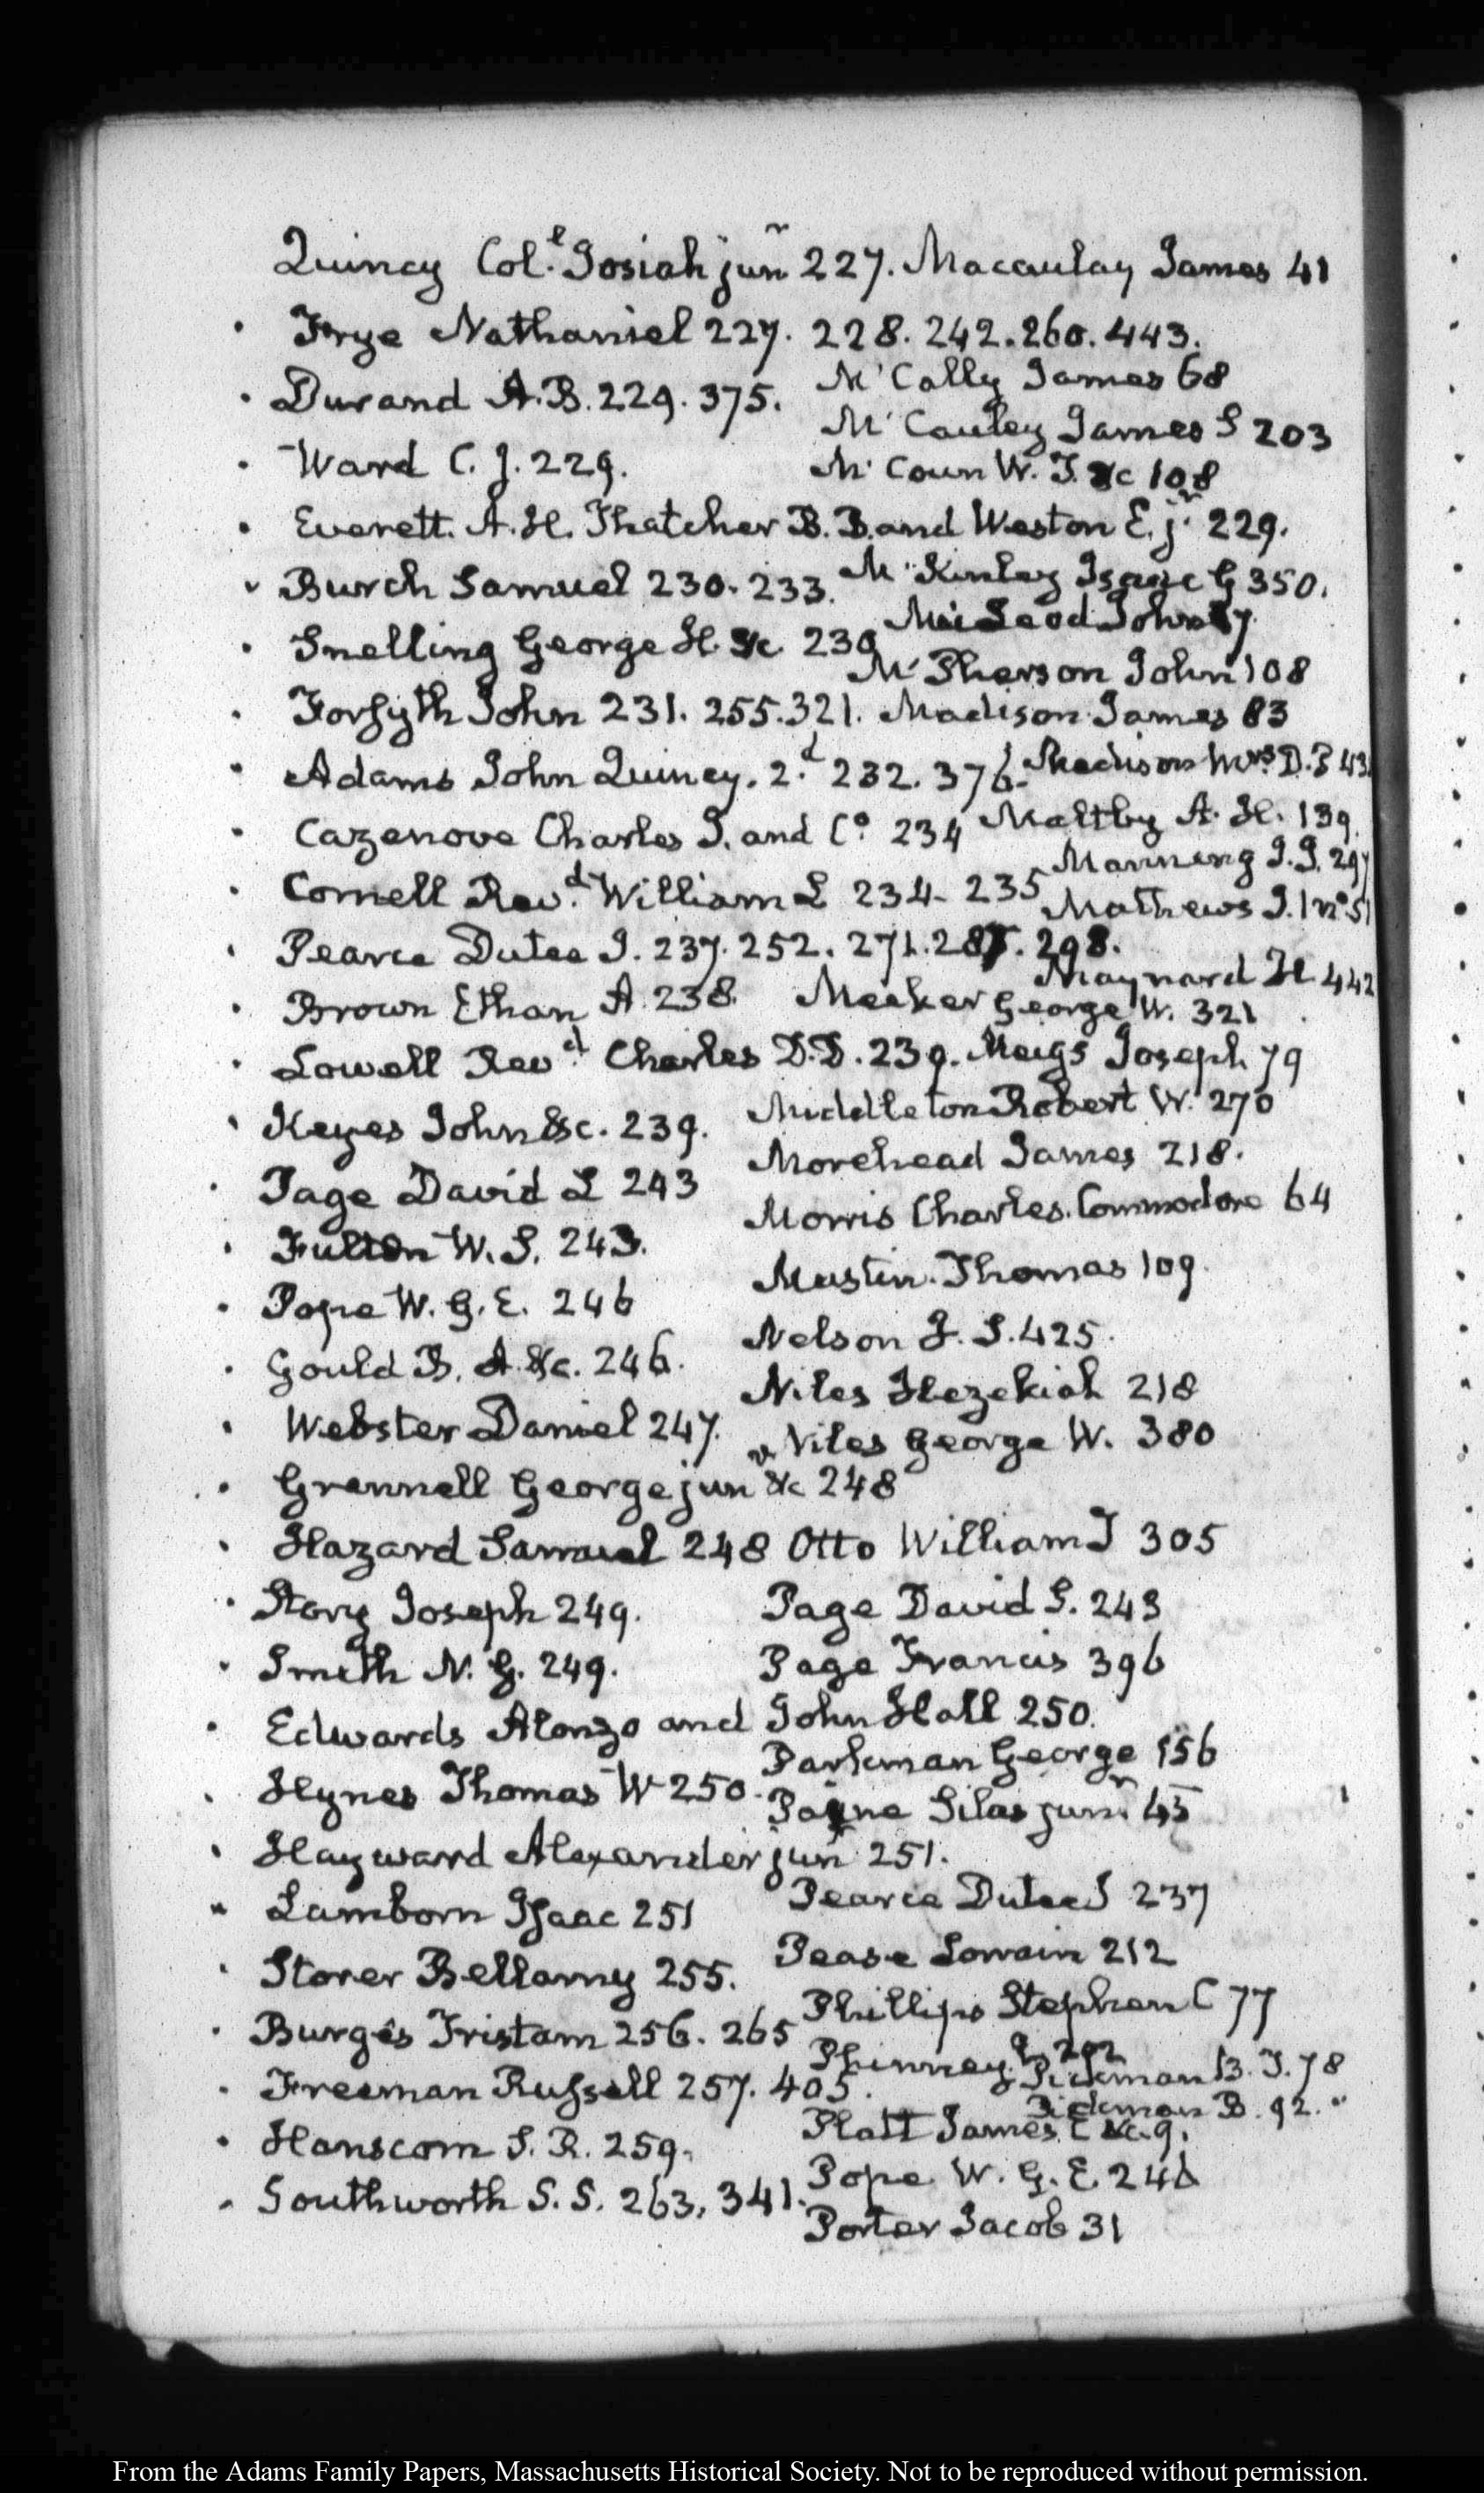 Quincy Col.l Josiah junr 227. Macaulay James 41
Frye Nathaniel 227. 228. 242. 260. 443.
Durand A. B. 229. 375.
McCally James 68
McCauley James S 203
Ward C. J. 229.
McCoun W. T. &c 108
Everett. A. H. Thatcher B. B. and Weston E. jr 229.
Burch Samuel 230. 233.
McKinley Isaac G 350.
Snelling George H. &c 230
McPherson John 108
Forsyth John 231. 255. 321. Madison James 83
Adams John Quincy. 2.d 232. 376.
Madison Mrs. D. P 43
Cazenove Charles J. and Co. 234
Maltby A. H. 139.
Manning J. J. 297
Cornell Revd. William L 234. 235
Mathews J.
Pearce Dutee J. 237. 252. 271. 298.
Maynard H. 442
Brown Ethan A. 238.
Meeker George W. 321
Lowell Revd. Charles D.D. 239. Meigs Joseph 79
Keyes John &c. 239.
Middleton Robert W. 270
Morehead James 218.
Page David L 243
Morris Charles. Commodore 64
Fulton W. S. 243.
Mustin. Thomas 109.
Pope W. G. E. 246
Nelson J. S. 425.
Gould B. A. &c. 246.
Niles Hezekiah 218
Webster Daniel 247.
Niles George W. 380
Grennell George jun &c 248
Hazard Samuel 248 Otto William T 305
Story Joseph 249.
Page David L. 243
Smith N. G. 249.
Page Francis 396
Edwards Alonzo and John Hall 250.
Parkman George 156
Hynes Thomas W 250.
Payne Silas junr 45
Hayward Alexander junr 251.
Lamborn Isaac 251
Pearce Dutee J 237
Pease Lorrain 212
Storer Bellamy 255.
Phillips Stephen C 77
Burges Tristam 256. 265
Phinney
Pickman B. T. 78
Freeman Russell 257. 405.
Pickman B. 92. "
Platt James C &c. 9.
Hanscom S. R. 259.
Pope W. G. E. 246
Southworth S. S. 263, 341.
Porter Jacob 31
From the Adams Family Papers, Massachusetts Historical Society. Not to be reproduced without permission.